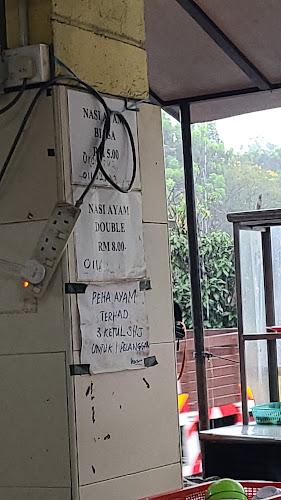 NASI AYAM
BIASA
RM 5.00
NASI AYAM
DOUBLE
RM 8.00
011
PEHA AYAM
TERHAD
3 KETUL SHJ
UNTUK 1 PELANGGAN